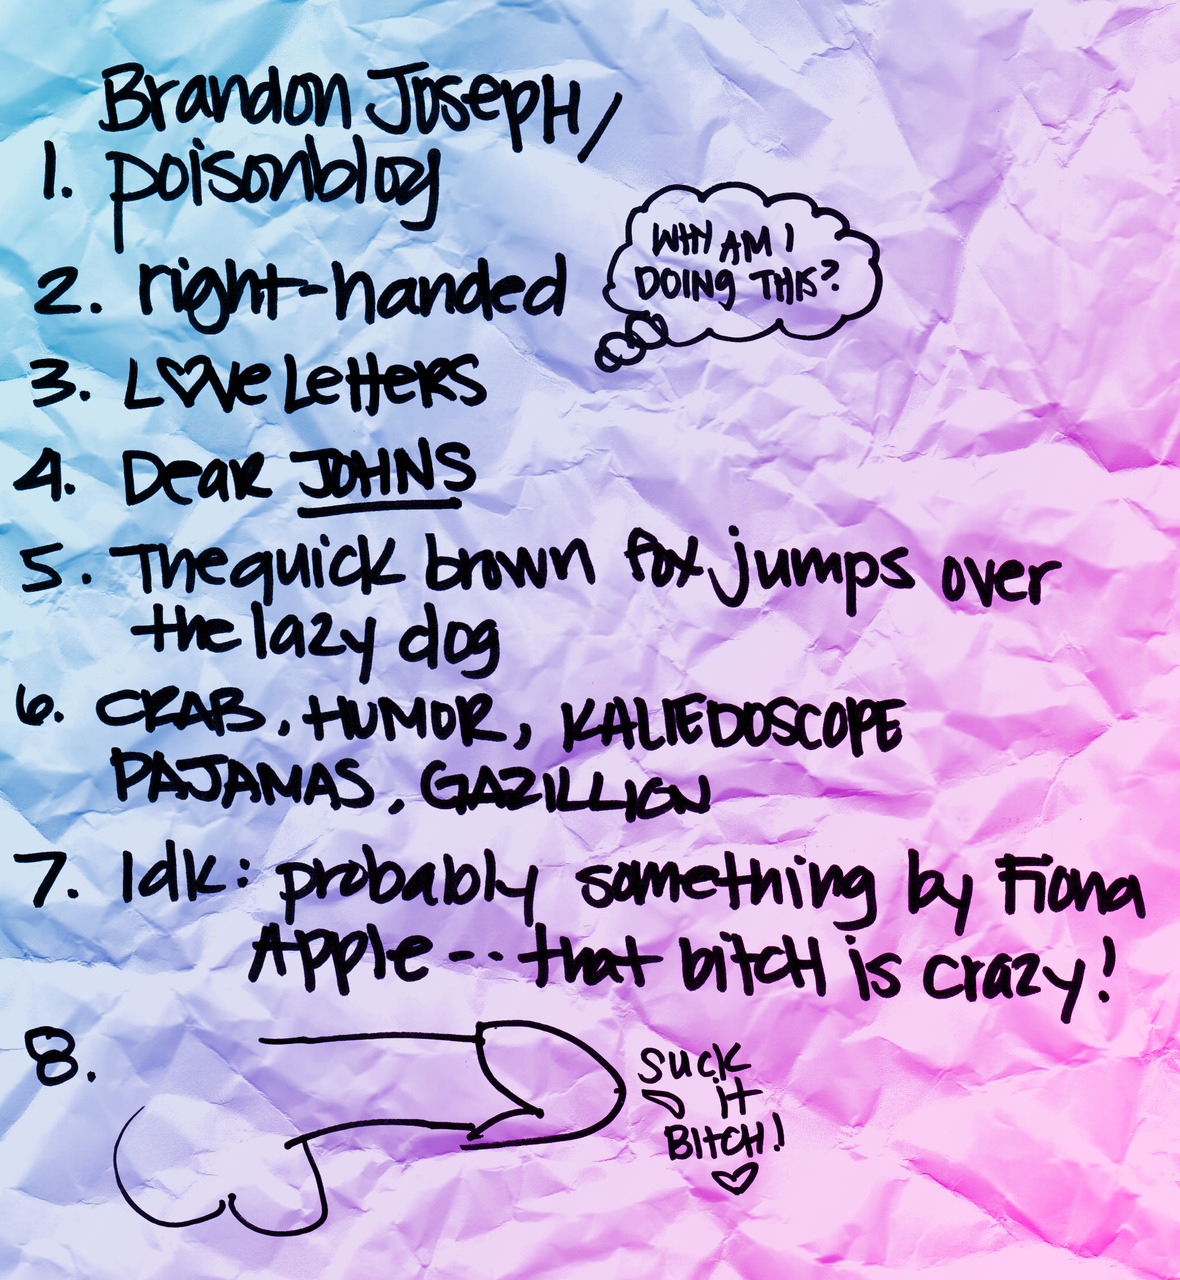 Brandon Joseph/
1. poisonblog
WHY AM I
DOING THIS?
2. right-handed
3. L♡ve Letters
4. Dear JOHNS
5. The quick brown fox jumps over
the lazy dog
6. CRAB, HUMOR, KALIEDOSCOPE
PAJAMAS, GAZILLION
7. Idk: probably something by Fiona
Apple--that bitch is crazy!
8.
Suck
it
BITCH!